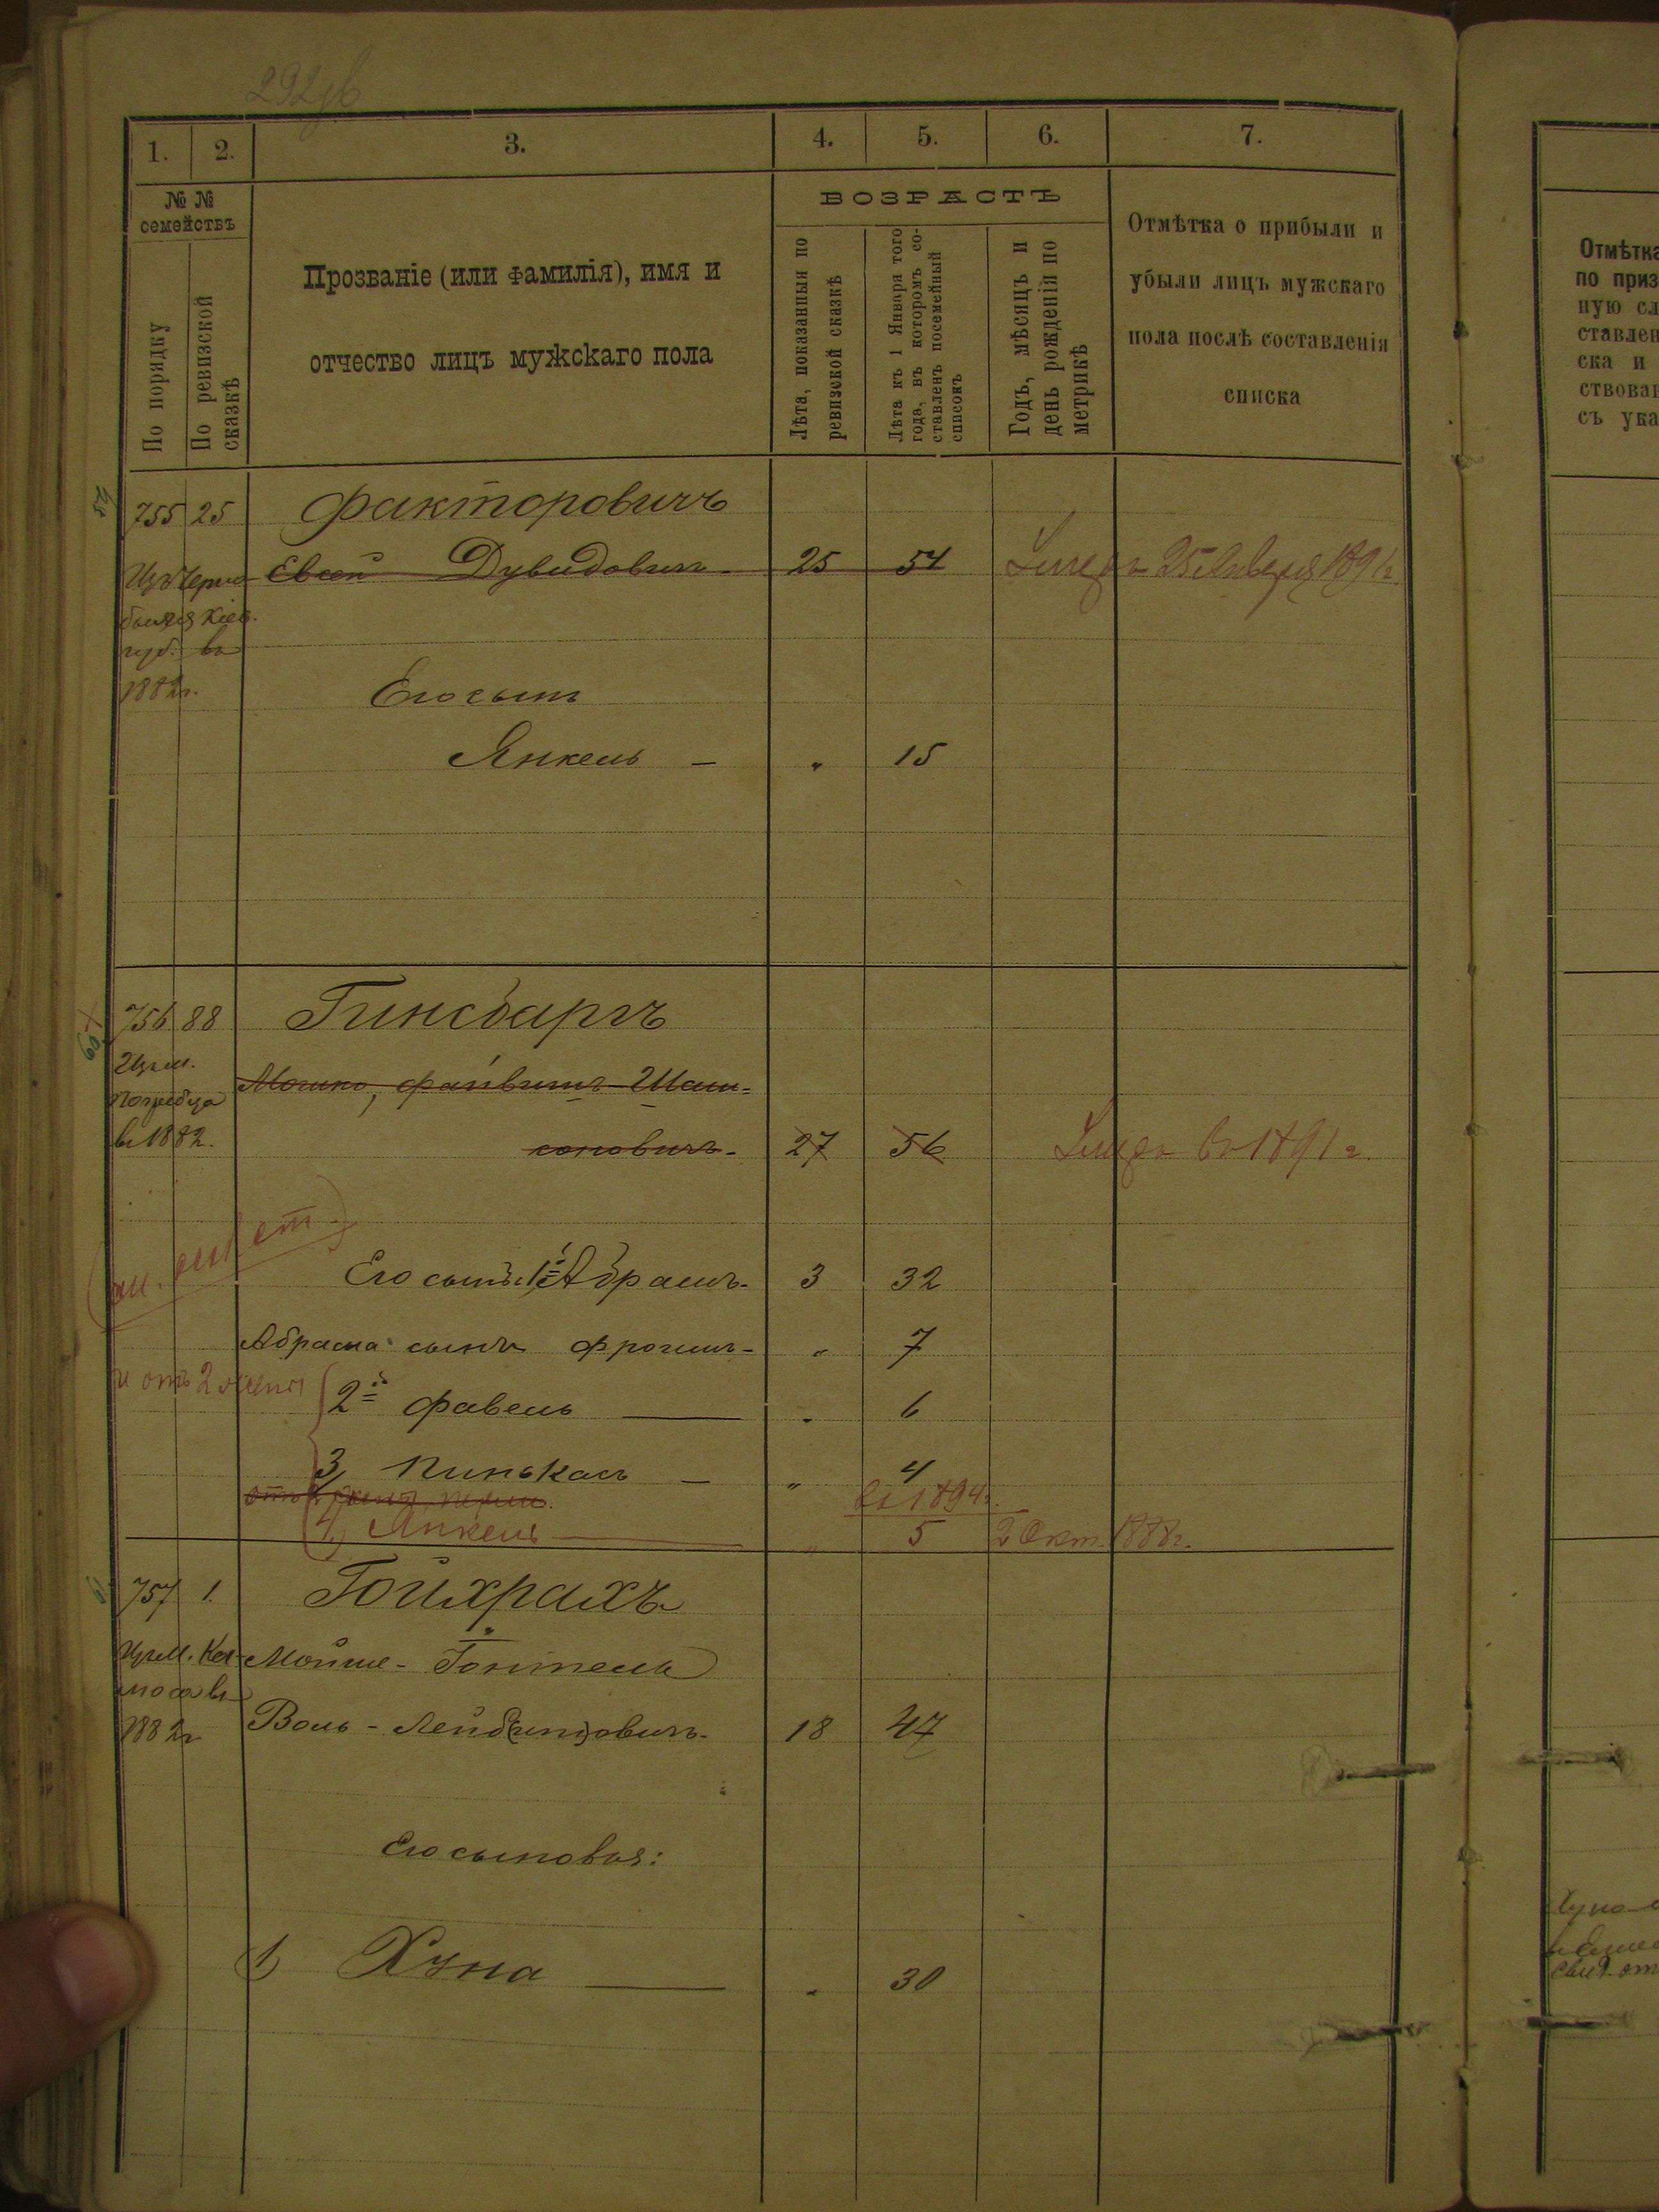 292 об
1. 2. 3. 4. 5. 6. 7.
№ №
семействъ
По порядку
По ревизской
сказкѣ
Прозваніе (или фамилія), имя и
отчество лицъ мужскаго пола
ВОЗРАСТЪ
Лѣта, показанныя по
ревизской сказкѣ
Лѣта къ 1 Января того
года, въ которомъ со-
ставленъ посемейный
списокъ
Годъ, мѣсяцъ и
день рожденія по
метрикѣ
Отмѣтка о прибыли и
убыли лицъ мужскаго
пола послѣ составленія
списка
755 25 Факторовичъ
Изъ Черно- Евсей Дувидовичъ 25 54 Умеръ 25 Января 1891 г.
былля Кіев.
губ. въ
1882 г.
Его сынъ
Янкель — " 15
756 88 Гинсбаргъ
Изъ м.
Погребища Мошко, Файвишъ Шам-
въ 1882. соновичъ 27 56 Умеръ въ 1891 г.
Его сынъ: 1й Абрамъ 3 32
Абрама сынъ Фроимъ " 7
и отъ 2 жены 2й Фавель — " 6
3) Пинькасъ — " 4
въ 1894 г.
4) Янкель — " 5 2 Окт. 1888 г.
757 1. Гойхрахъ
Изъ м. Мойше-
въ
1882 г. Воль-Лейб 18 47
Его сыновья:
1) Хуна — " 30
Отмѣтка
по приз
ную сл
ставлен
ска и
ствован
съ ука